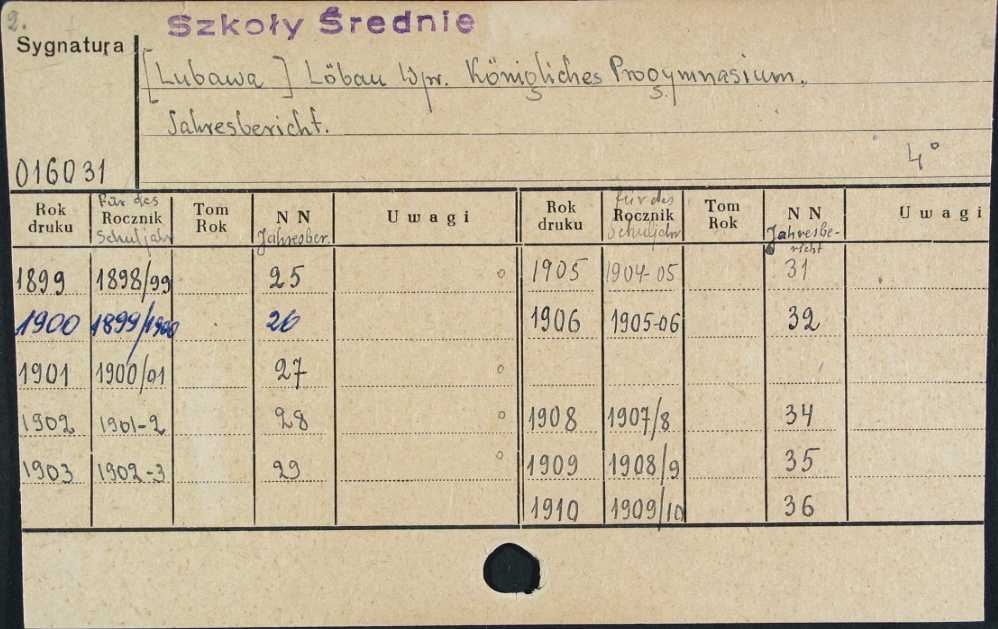 2.
Szkoły Średnie
Sygnatura
[Lubawa] Löbau Wpr. Königliches Progymnasium.
Jahresbericht.
4°
016031
Rok druku | Für des Rocznik Schuljahr | Tom Rok | NN Jahresber. | Uwagi | Rok druku | für des Rocznik Schuljahr | Tom Rok | NN Jahresbericht | Uwagi
1899 | 1898/99 | | 25 | o | 1905 | 1904-05 | | 31
1900 | 1899/1900 | | 26 | | 1906 | 1905-06 | | 32
1901 | 1900/01 | | 27 | o
1902 | 1901-2 | | 28 | o | 1908 | 1907/8 | | 34
1903 | 1902-3 | | 29 | o | 1909 | 1908/9 | | 35
1910 | 1909/10 | | 36